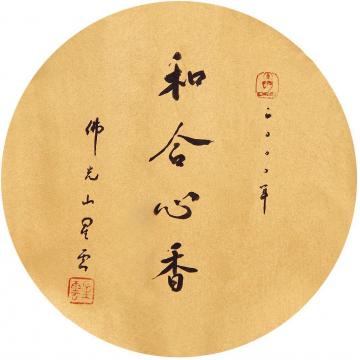 二〇〇〇年
和合心香
佛光山星雲